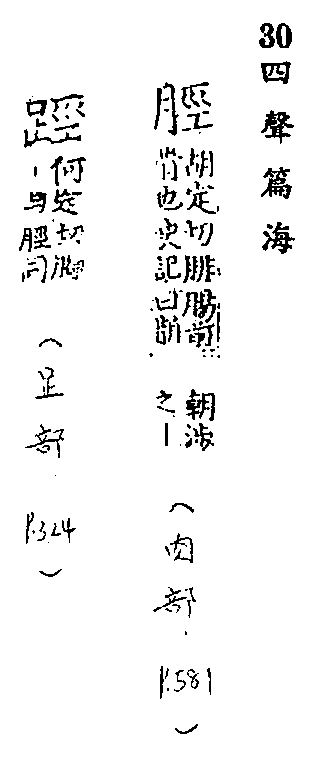 30 四聲篇海
脛
胡定切腓腸前
骨也史記曰
朝涉
之丨
（肉部. P.581）
踁
何定切脚
丨与脛同
（足部. P.324）